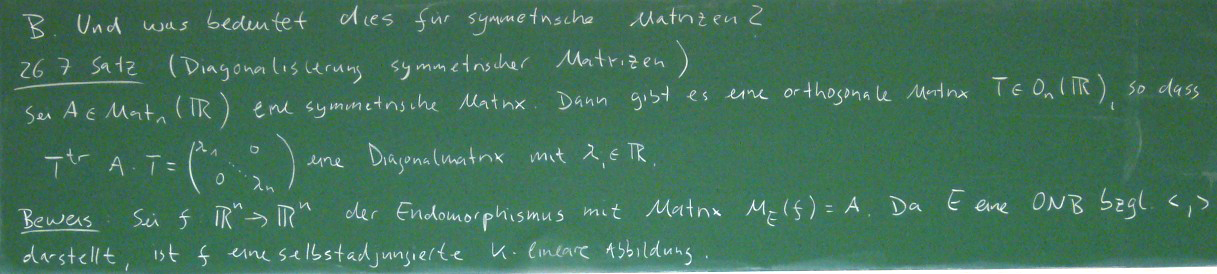 B. Und was bedeutet dies für symmetrische Matrizen?
26.7 Satz (Diagonalisierung symmetrischer Matrizen)
Sei A ∈ Matₙ(ℝ) eine symmetrische Matrix. Dann gibt es eine orthogonale Matrix T ∈ Oₙ(ℝ), so dass
Tᵗʳ · A · T = (λ₁ 0 ⋱ 0 λₙ) eine Diagonalmatrix mit λᵢ ∈ ℝ.
Beweis: Sei f: ℝⁿ → ℝⁿ der Endomorphismus mit Matrix M_E(f) = A. Da E eine ONB bzgl. <,>
darstellt, ist f eine selbstadjungierte K-lineare Abbildung.